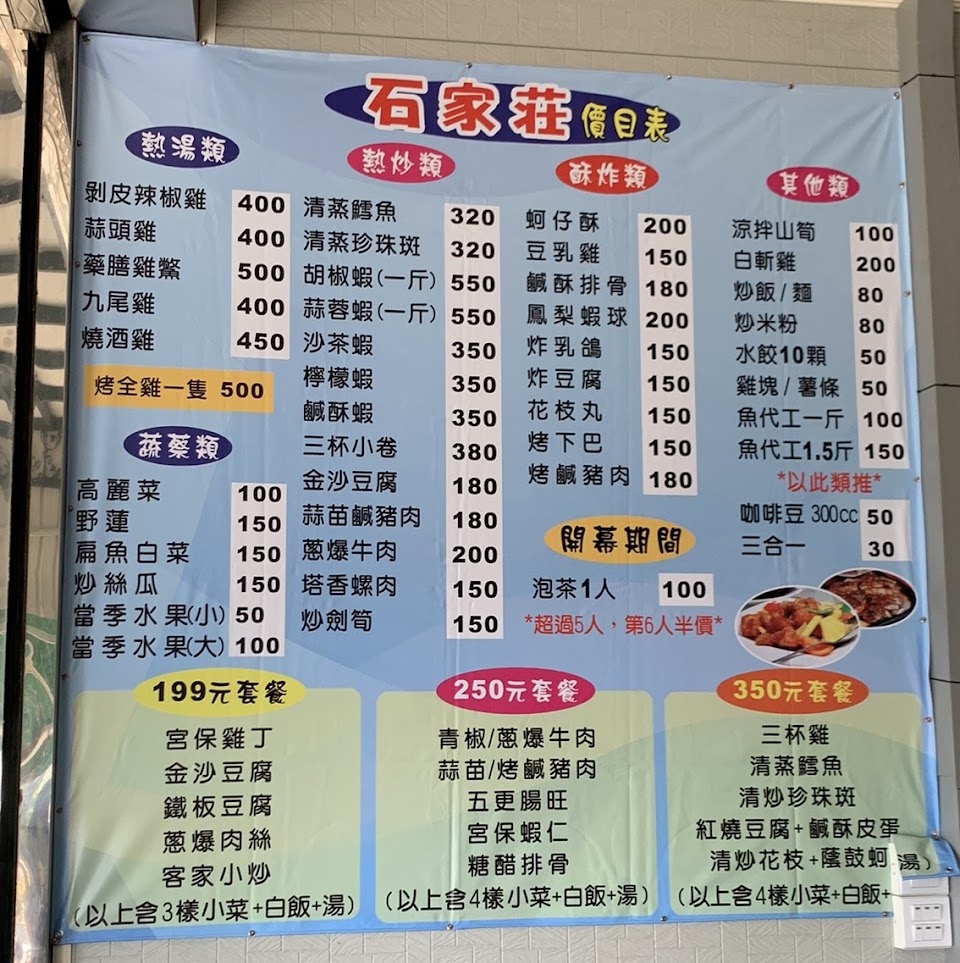 石家莊 價目表
熱湯類
剝皮辣椒雞 400
蒜頭雞 400
藥膳雞鱉 500
九尾雞 400
燒酒雞 450
烤全雞一隻 500
蔬蔡類
高麗菜 100
野蓮 150
扁魚白菜 150
炒絲瓜 150
當季水果(小) 50
當季水果(大) 100
熱炒類
清蒸鱈魚 320
清蒸珍珠斑 320
胡椒蝦(一斤) 550
蒜蓉蝦(一斤) 550
沙茶蝦 350
檸檬蝦 350
鹹酥蝦 350
三杯小卷 380
金沙豆腐 180
蒜苗鹹豬肉 180
蔥爆牛肉 200
塔香螺肉 150
炒劍筍 150
酥炸類
蚵仔酥 200
豆乳雞 150
鹹酥排骨 180
鳳梨蝦球 200
炸乳鴿 150
炸豆腐 150
花枝丸 150
烤下巴 150
烤鹹豬肉 180
開幕期間
泡茶1人 100
*超過5人，第6人半價*
其他類
涼拌山筍 100
白斬雞 200
炒飯/麵 80
炒米粉 80
水餃10顆 50
雞塊/薯條 50
魚代工一斤 100
魚代工1.5斤 150
*以此類推*
咖啡豆300cc 50
三合一 30
199元套餐
宮保雞丁
金沙豆腐
鐵板豆腐
蔥爆肉絲
客家小炒
(以上含3樣小菜+白飯+湯)
250元套餐
青椒/蔥爆牛肉
蒜苗/烤鹹豬肉
五更腸旺
宮保蝦仁
糖醋排骨
(以上含4樣小菜+白飯+湯)
350元套餐
三杯雞
清蒸鱈魚
清炒珍珠斑
紅燒豆腐+鹹酥皮蛋
清炒花枝+蔭鼓蚵
(以上含4樣小菜+白飯+湯)